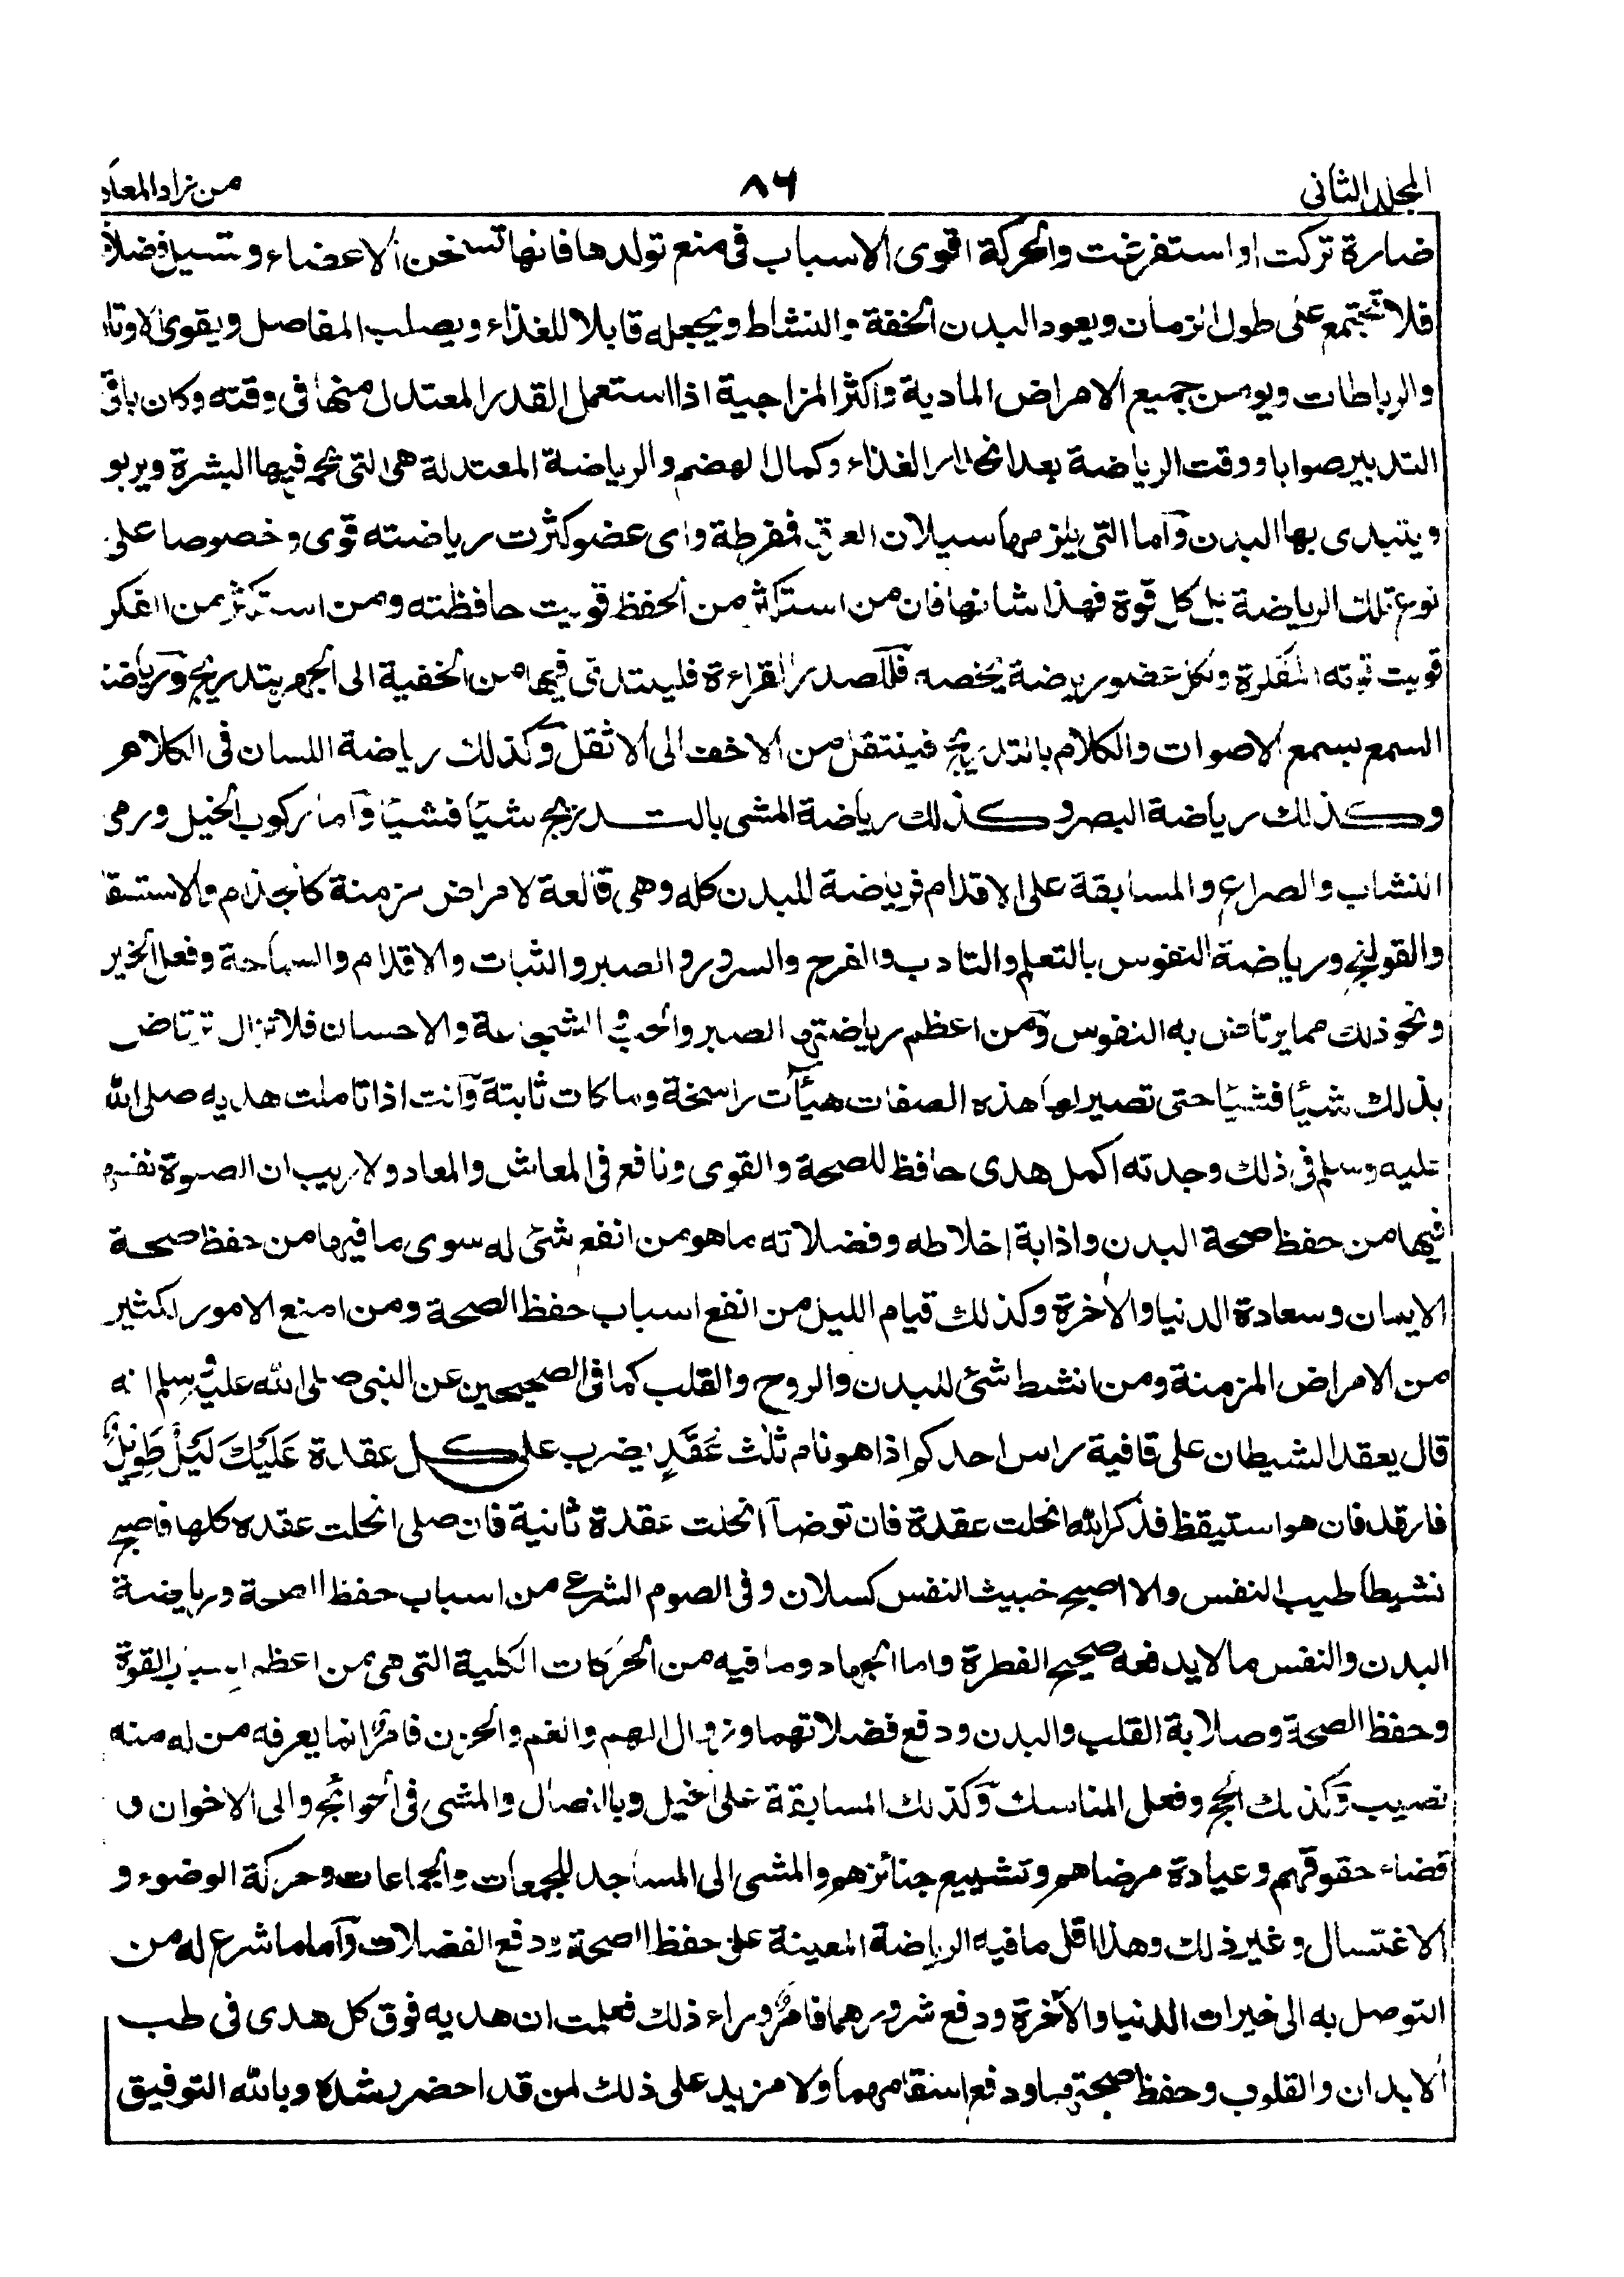 المجلد الثاني
٨٦
من زاد المعاد
ضارة تركت او استفرغت والحركة اقوى الاسباب فى منع تولدها فانها تسخن الاعضاء وتسيل فضلاتها
فلا تجتمع على طول الزمان ويعود البدن الخفة والنشاط ويجعله قابلا للغذاء ويصلب المفاصل ويقوى الاوتار
والرباطات ويومن جميع الامراض المادية واكثر المزاجية اذا استعمل القدر المعتدل منها فى وقته وكان باقى
التدبير صوابا ووقت الرياضة بعد انحدار الغذاء وكمال الهضم والرياضة المعتدلة هى التى تحمر فيها البشرة ويربو
ويتبدى بها البدن وآما التى يلزمها سيلان العرق فمفرطة واى عضو كثرت رياضته قوى وخصوصا على
نوع تلك الرياضة بل كل قوة فهذا شانها فان من استكثر من الحفظ قويت حافظته ومن استكثر من الفكر
قويت قوته المفكرة ولكل عضو رياضة يخصه فللصدر القراءة فليبتدئ فيها من الخفية الى الجهر بتدريج ورياضة
السمع بسمع الاصوات والكلام بالتدريج فينتقل من الاخف الى الاثقل وكذلك رياضة اللسان فى الكلام
وكذلك رياضة البصر وكذلك رياضة المشى بالتدريج شيئا فشيئا وآما ركوب الخيل ورمى
النشاب والصراع والمسابقة على الاقدام فرياضة للبدن كله وهى قالعة لامراض مزمنة كالجذام والاستسقا
والقولنج ورياضة النفوس بالتعلم والتادب والفرح والسرور والصبر والثبات والاقدام والسماحة وفعل الخير
ونحو ذلك مما يرتاض به النفوس ومن اعظم رياضتها الصبر والحب والشجاعة والاحسان فلا تزال ترتاض
بذلك شيئا فشيئا حتى تصير لها هذه الصفات هيآت راسخة وملكات ثابتة وآنت اذا تاملت هديه صلى الله
عليه وسلم فى ذلك وجدته اكمل هدى حافظ للصحة والقوى ونافع فى المعاش والمعاد ولا ريب ان الصلوة نفسها
فيها من حفظ صحة البدن واذابة اخلاطه وفضلاته ما هو من انفع شئ له سوى ما فيها من حفظ صحة
الايمان وسعادة الدنيا والاخرة وكذلك قيام الليل من انفع اسباب حفظ الصحة ومن امنع الامور لكثير
من الامراض المزمنة ومن انشط شئ للبدن والروح والقلب كما فى الصحيحين عن النبى صلى الله عليه وسلم انه
قال يعقد الشيطان على قافية راس احدكم اذا هو نام ثلث عُقَدٍ يضرب على كل عقدة عَلَيْكَ لَيْلٌ طَوِيْلٌ
فارقد فان هو استيقظ فذكر الله انحلت عقدة فان توضأ انحلت عقدة ثانية فان صلى انحلت عقده كلها فاصبح
نشيطا طيب النفس والا اصبح خبيث النفس كسلان وفى الصوم الشرعى من اسباب حفظ الصحة ورياضة
البدن والنفس ما لا يدفعه صحيح الفطرة واما الجهاد وما فيه من الحركات الكلية التى هى من اعظم اسباب القوة
وحفظ الصحة وصلابة القلب والبدن ودفع فضلاتهما وزوال الهم والغم والحزن فامر انما يعرفه من له منه
نصيب وكذلك الحج وفعل المناسك وكذلك المسابقة على الخيل وبالنصال والمشى فى الحوائج والى الاخوان و
قضاء حقوقهم وعيادة مرضاهم وتشييع جنائزهم والمشى الى المساجد للجمعات والجماعات وحركة الوضوء و
الاغتسال وغير ذلك وهذا اقل ما فيه الرياضة المعينة على حفظ الصحة ودفع الفضلات وآما ما شرع له من
التوصل به الى خيرات الدنيا والآخرة ودفع شرورهما فامر وراء ذلك فعلمت ان هديه فوق كل هدى فى طب
الابدان والقلوب وحفظ صحتهما ودفع اسقامهما ولا مزيد على ذلك لمن قد احضر رشده وبالله التوفيق